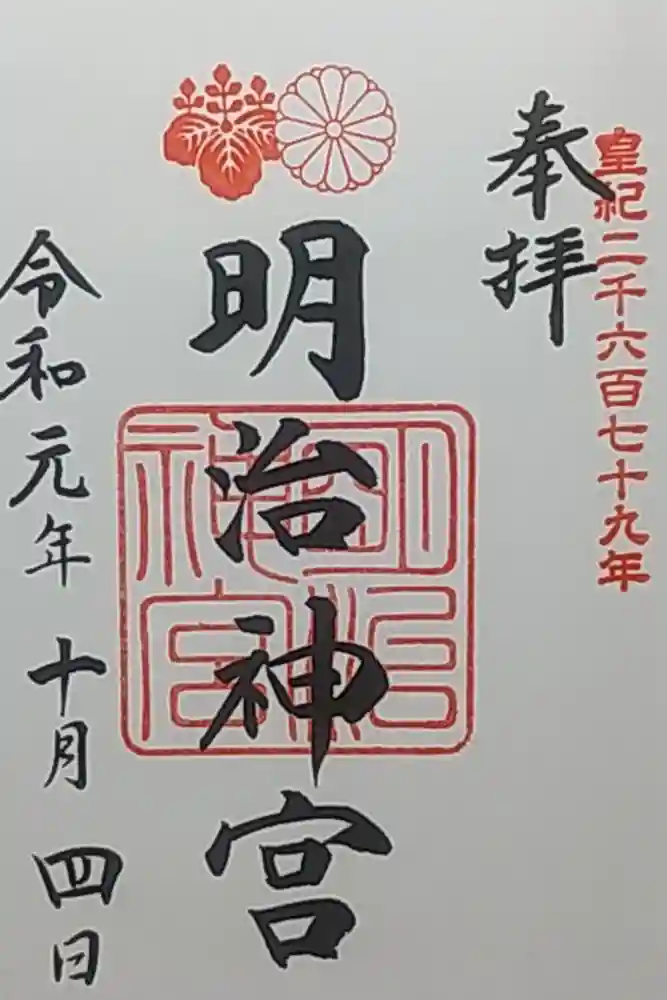 皇紀二千六百七十九年
奉拝
明治神宮
明治神宮
令和元年十月四日